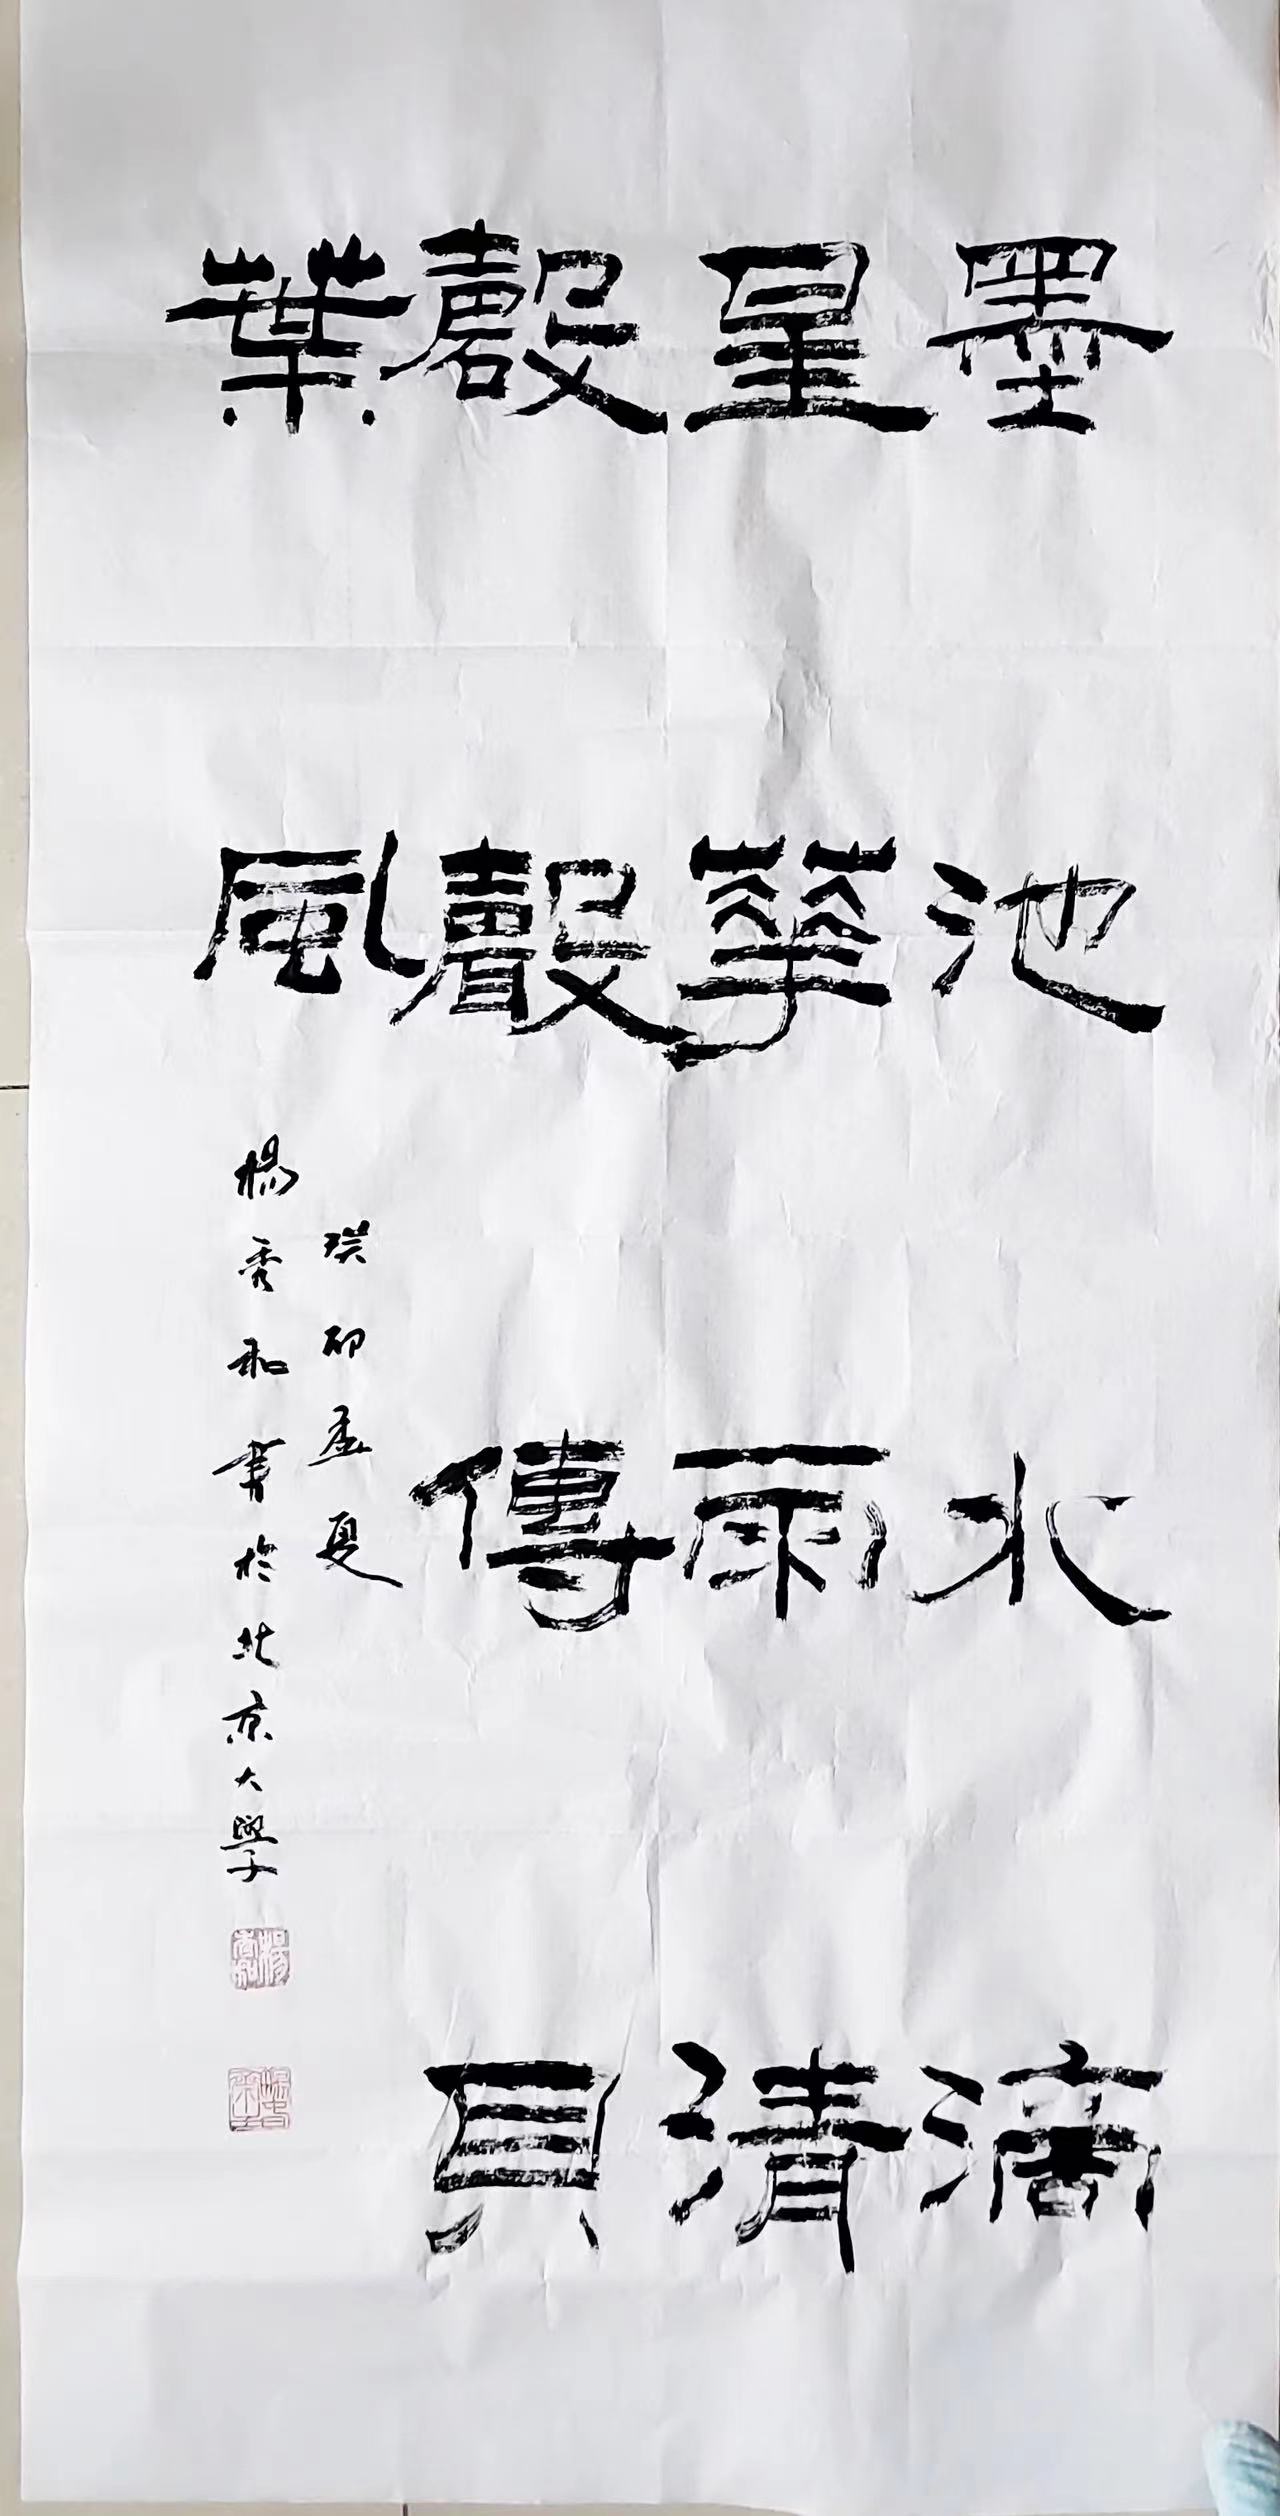 墨池水滴
星華雨清
磬聲傳貝
葉風
癸卯孟夏
楊秀和書於北京大學